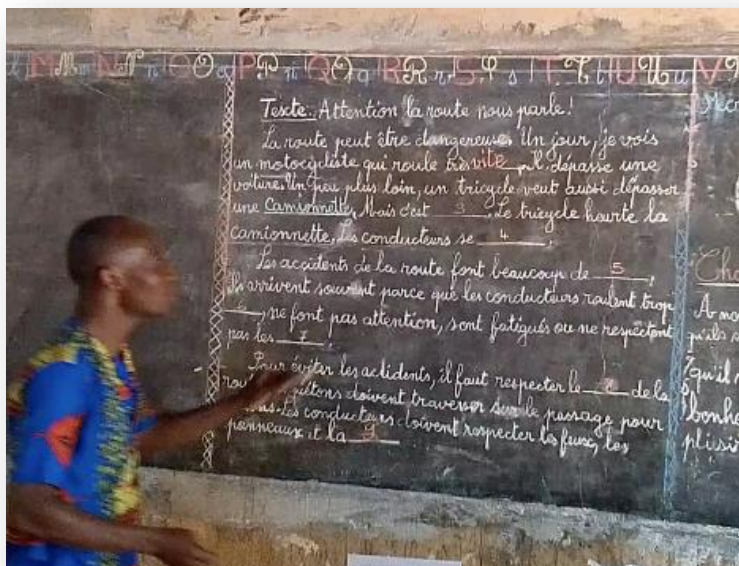 M M m N N n O O o P P p Q Q q R R r S S s T T t U U u V
Texte: Attention la route nous parle!
La route peut être dangereuse. Un jour, je vois
un motocycliste qui roule très vite. Il dépasse une
voiture. Un peu plus loin, un tricycle veut aussi dépasser
une Camionnette, Mais c'est 3. Le tricycle heurte la
camionnette. Les conducteurs se 4.
Les accidents de la route font beaucoup de 5.
Ils arrivent souvent parce que les conducteurs roulent trop
6, ne font pas attention, sont fatigués ou ne respectent
pas les 7.
Pour éviter les accidents, il faut respecter le 8 de la
doivent traverser sur le passage pour
Les conducteurs doivent respecter les feux, les
panneaux et la 9
Cho
A mo
qu'il
bonhe
plusi